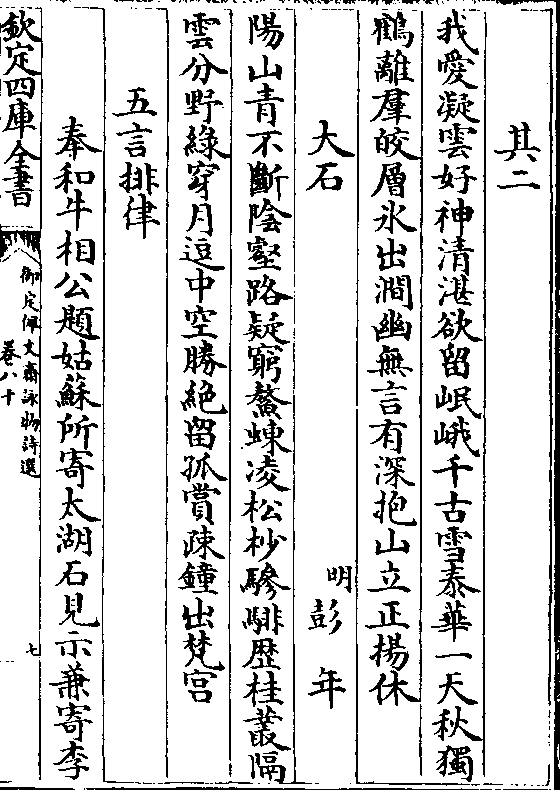 其二
我愛凝雲好神清湛欲留岷峨千古雪泰華一天秋獨
鶴離羣皎層氷出澗幽無言有深抱山立正揚休
大石
明彭年
陽山青不斷陰壑路疑窮螯蝀凌松杪驂騑歴桂叢隔
雲分野綠穿月逗中空勝絶留孤賞疎鐘出梵宫
五言排律
奉和牛相公題姑蘇所寄太湖石見示兼寄李
欽定四庫全書
御定佩文齋詠物詩選
卷八十
七